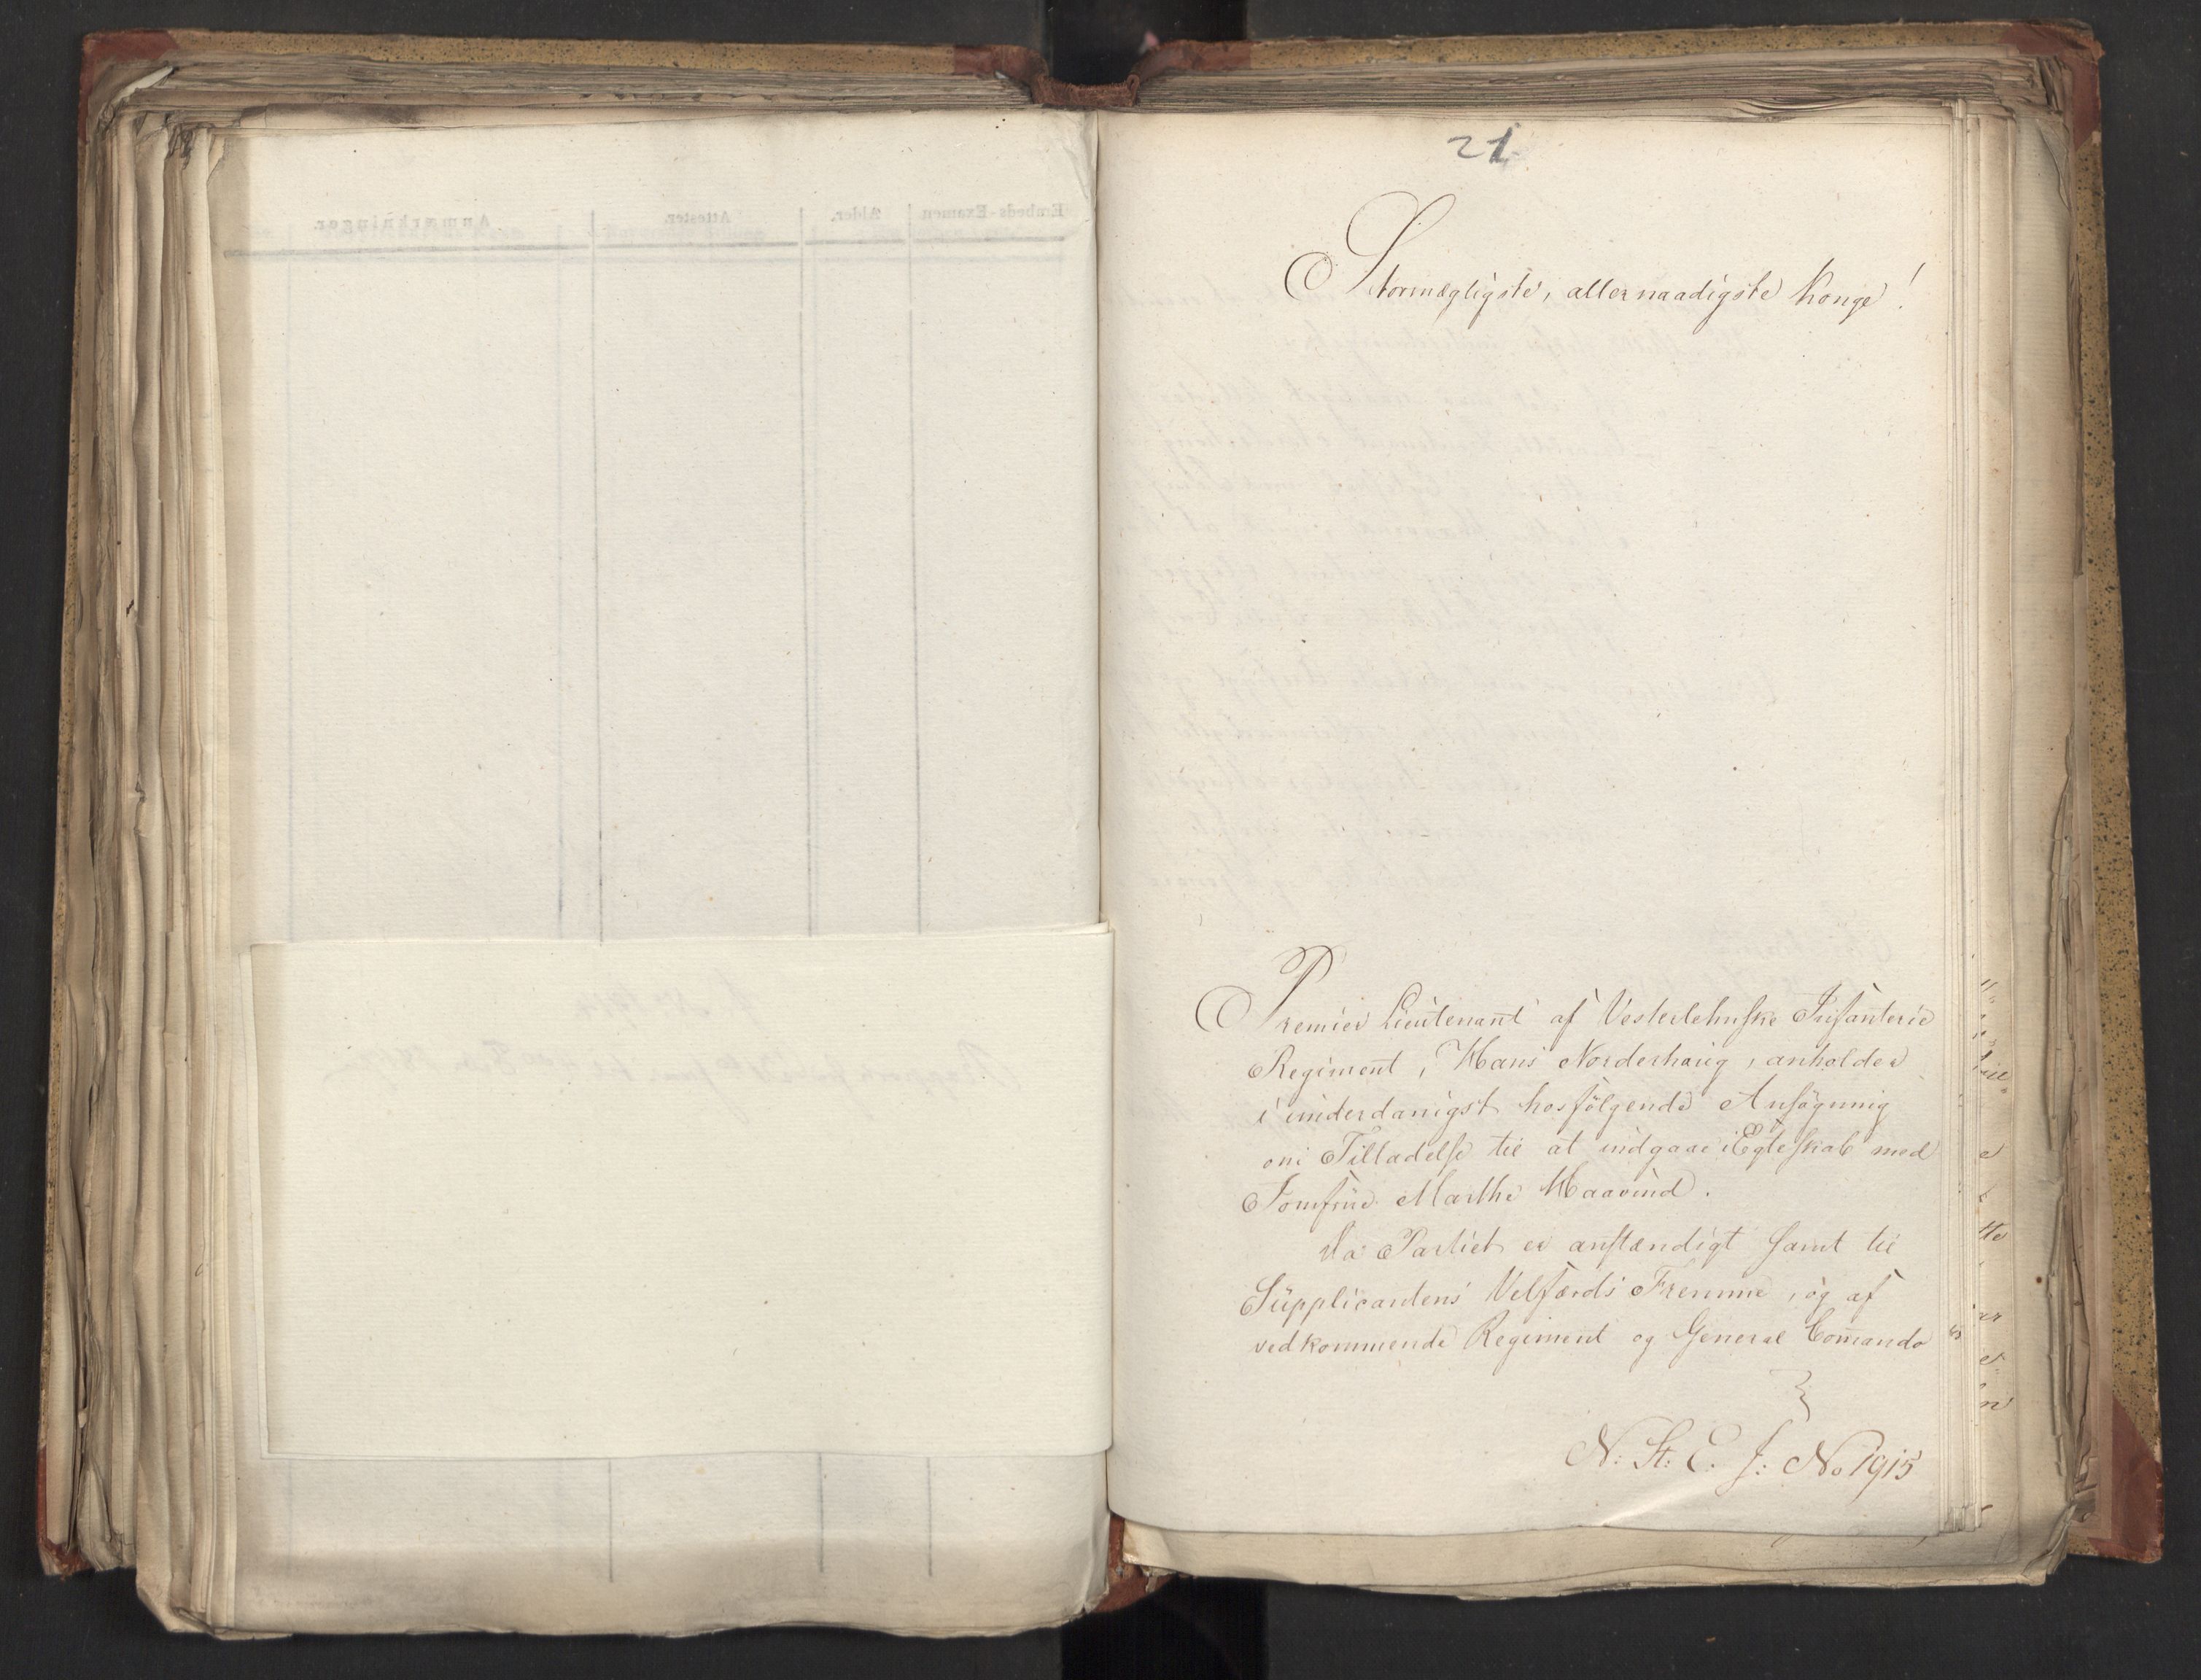 21
Stormægtigste, allernaadigste Konge!
Premier Lieutenant af Vesterlehnske Infanterie
Regiment, Hans Norderhaug, anholder
i underdanigst hosfölgende Ansögning
om Tilladelse til at indgaae i Egteskab med
Jomfrue Marthe Haavind.
Da Partiet er anstændigt samt til
Supplicantens Velfærds Fremme, og af
vedkommende Regiment og General Comando
N: St: E. J: No 1915